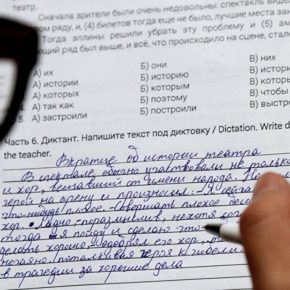 театр.
Сначала зрители были очень недовольны: спектакль виде
ом ряду, и, (4) билетов тогда еще не было, лучшие места зан
Тогда эллины решили убрать эту проблему и (5) ам
ющий ряд был выше, и всё, что происходило на сцене, стал
А) их Б) они В) них
А) истории Б) историю В) истори
А) которых Б) которым В) которы
4. А) так как Б) поэтому В) чтобы
5. А) застроили Б) построили В) выстро
Часть 6. Диктант. Напишите текст под диктовку / Dictation. Write d
the teacher.
Вкратце об истории театра
В спектакле обычно участвовали не только
и хор, вещавший от имени народа.
героя на арену и произносил: Я сейчас
что-нибудь плохое. Совершать плохое
хор.
тогда я пойду и сделаю что-
делать хорошо, одобрял его хор,
нечаянно, поталкивая героя к гибели
в трагедии за хорошие дела